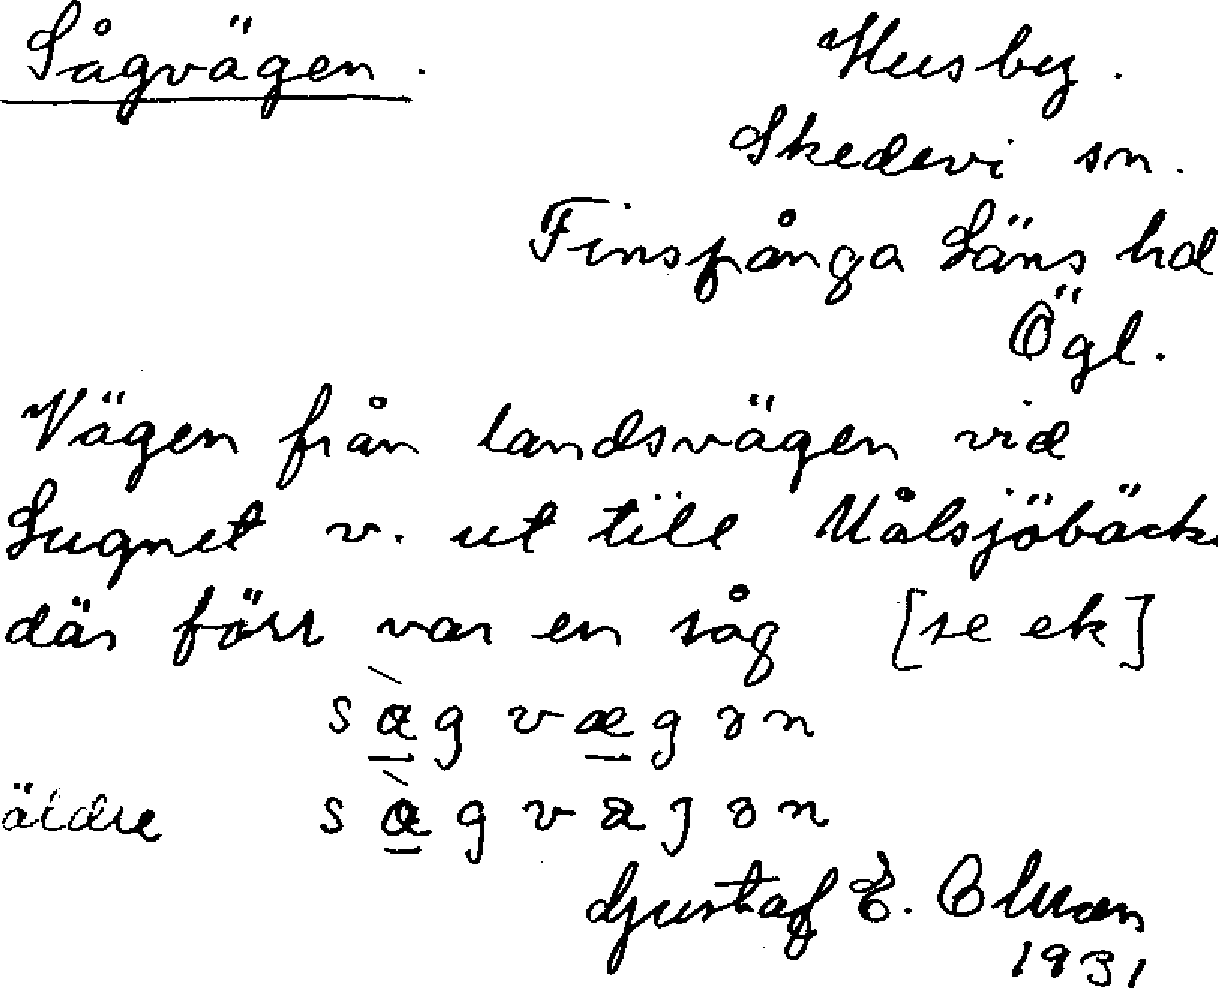 Sågvägen.
Husby.
Skedevi sn.
Finspånga Läns hd
Ögl.
Vägen från landsvägen vid
Lugnet v. ut till Målsjöbäck.
där förr var en såg [se ek]
äldre
Gustaf E.
1931